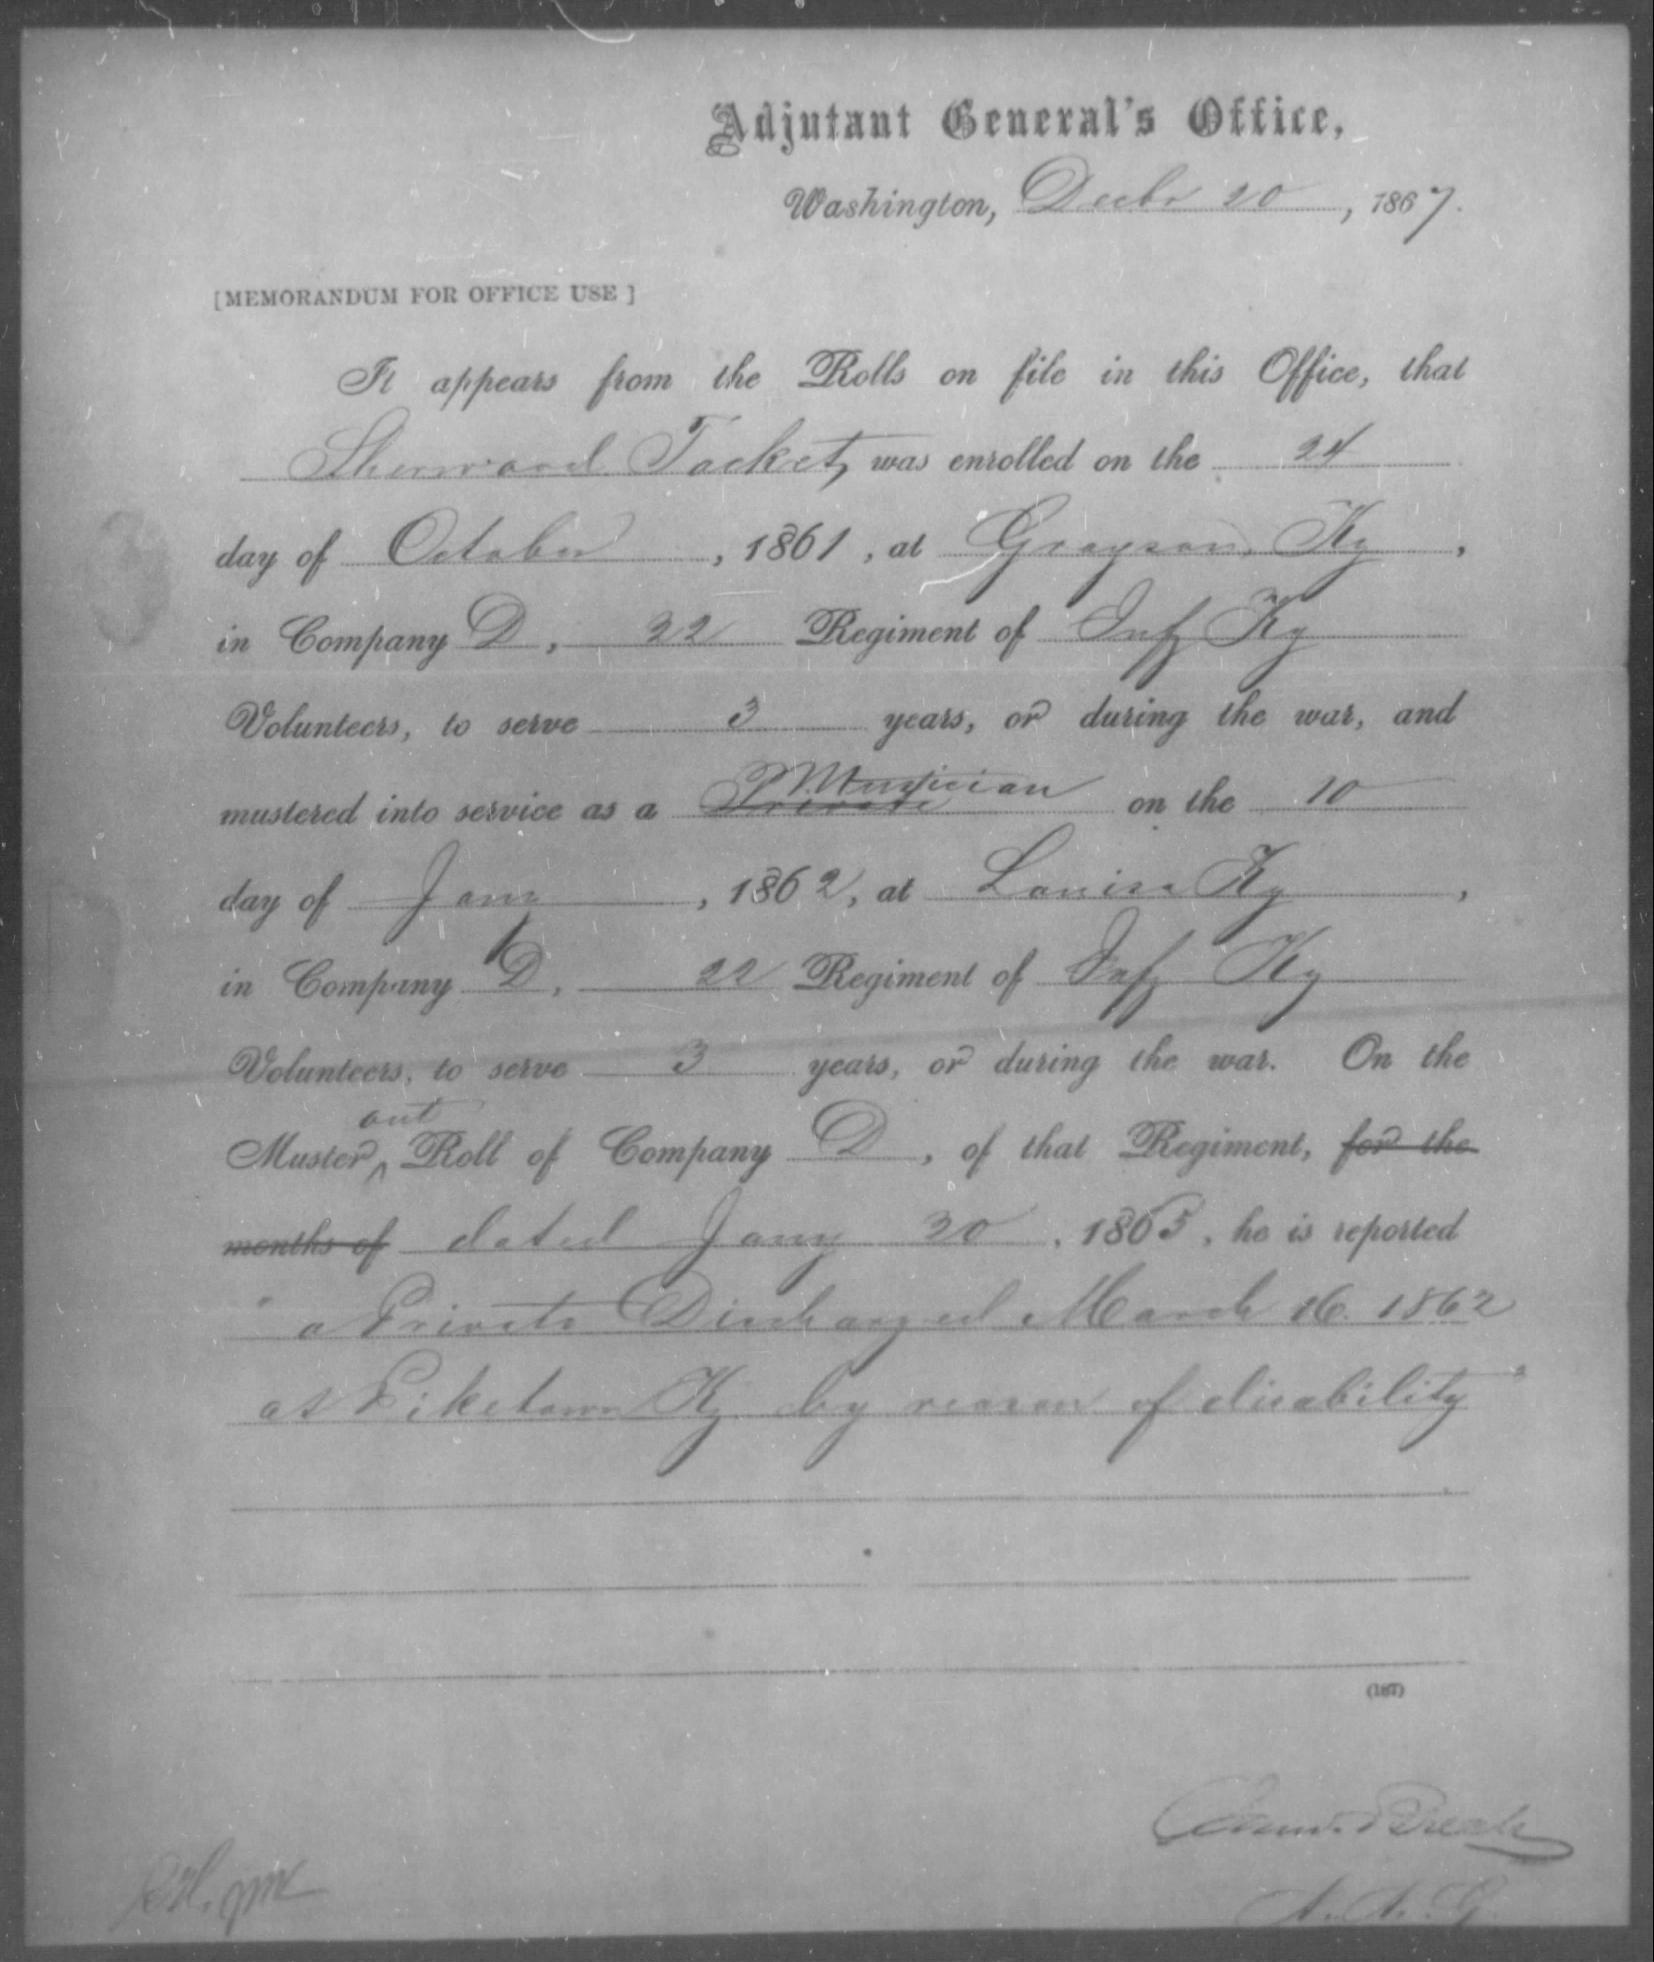 Adjutant General's Office,
Washington, Decbr 20, 1867.
[MEMORANDUM FOR OFFICE USE]
It appears from the Rolls on file in this Office, that
Sherwood Tacket, was enrolled on the 24
day of October, 1861, at Grayson, Ky,
in Company D, 22 Regiment of Infy Ky
Volunteers, to serve 3 years, or during the war, and
Musician
mustered into service as a Private on the 10
day of Jany, 1862, at Louisa Ky,
in Company D, 22 Regiment of Infy Ky
Volunteers, to serve 3 years, or during the war. On the
out
Muster ^ Roll of Company D, of that Regiment, for the
months of dated Jany 30, 1865, he is reported
"a Private Discharged March 16. 1862
at Piketown Ky by reason of disability"
(187)
A. A. G.